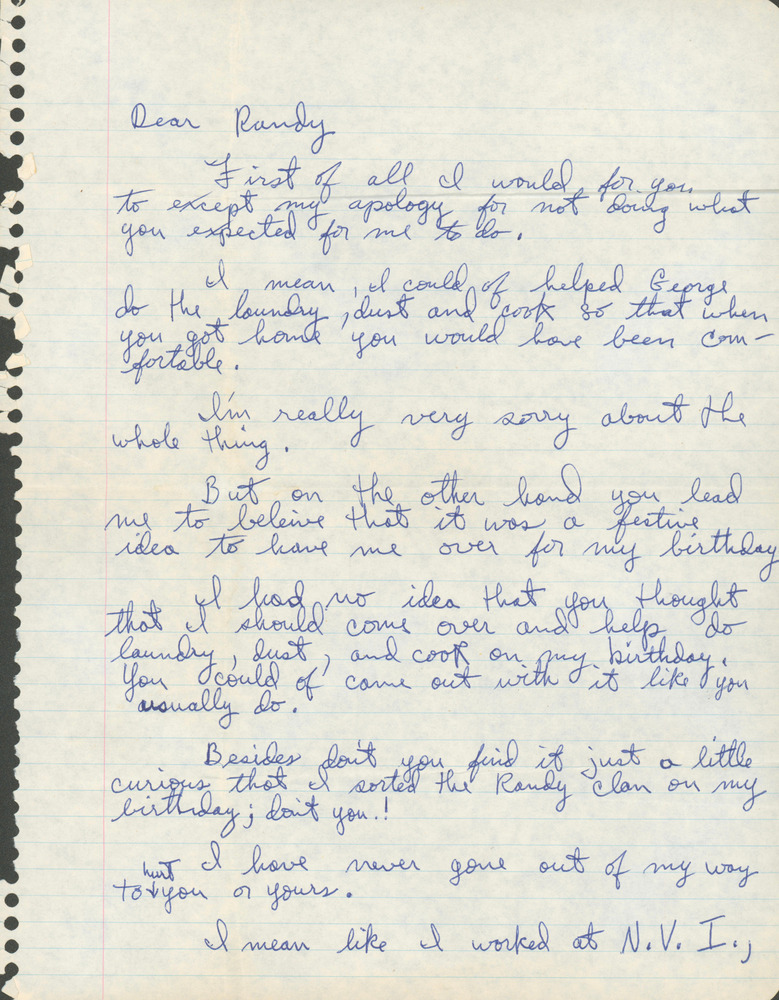 Dear Randy
First of all I would, for you
to except my apology for not doing what
you expected for me to do.
I mean, I could of helped George
do the laundry, dust and cook so that when
you got home you would have been com-
fortable.
I'm really very sorry about the
whole thing.
But on the other hand you lead
me to beleive that it was a festive
idea to have me over for my birthday
I had no idea that you thought
that I should come over and help do
laundry, dust, and cook on my birthday.
You could of came out with it like you
usually do.
Besides don't you find it just a little
curious that I sorted the Randy clan on my
birthday; don't you.!
I have never gone out of my way
to hurt you or yours.
I mean like I worked at N.V.I.,